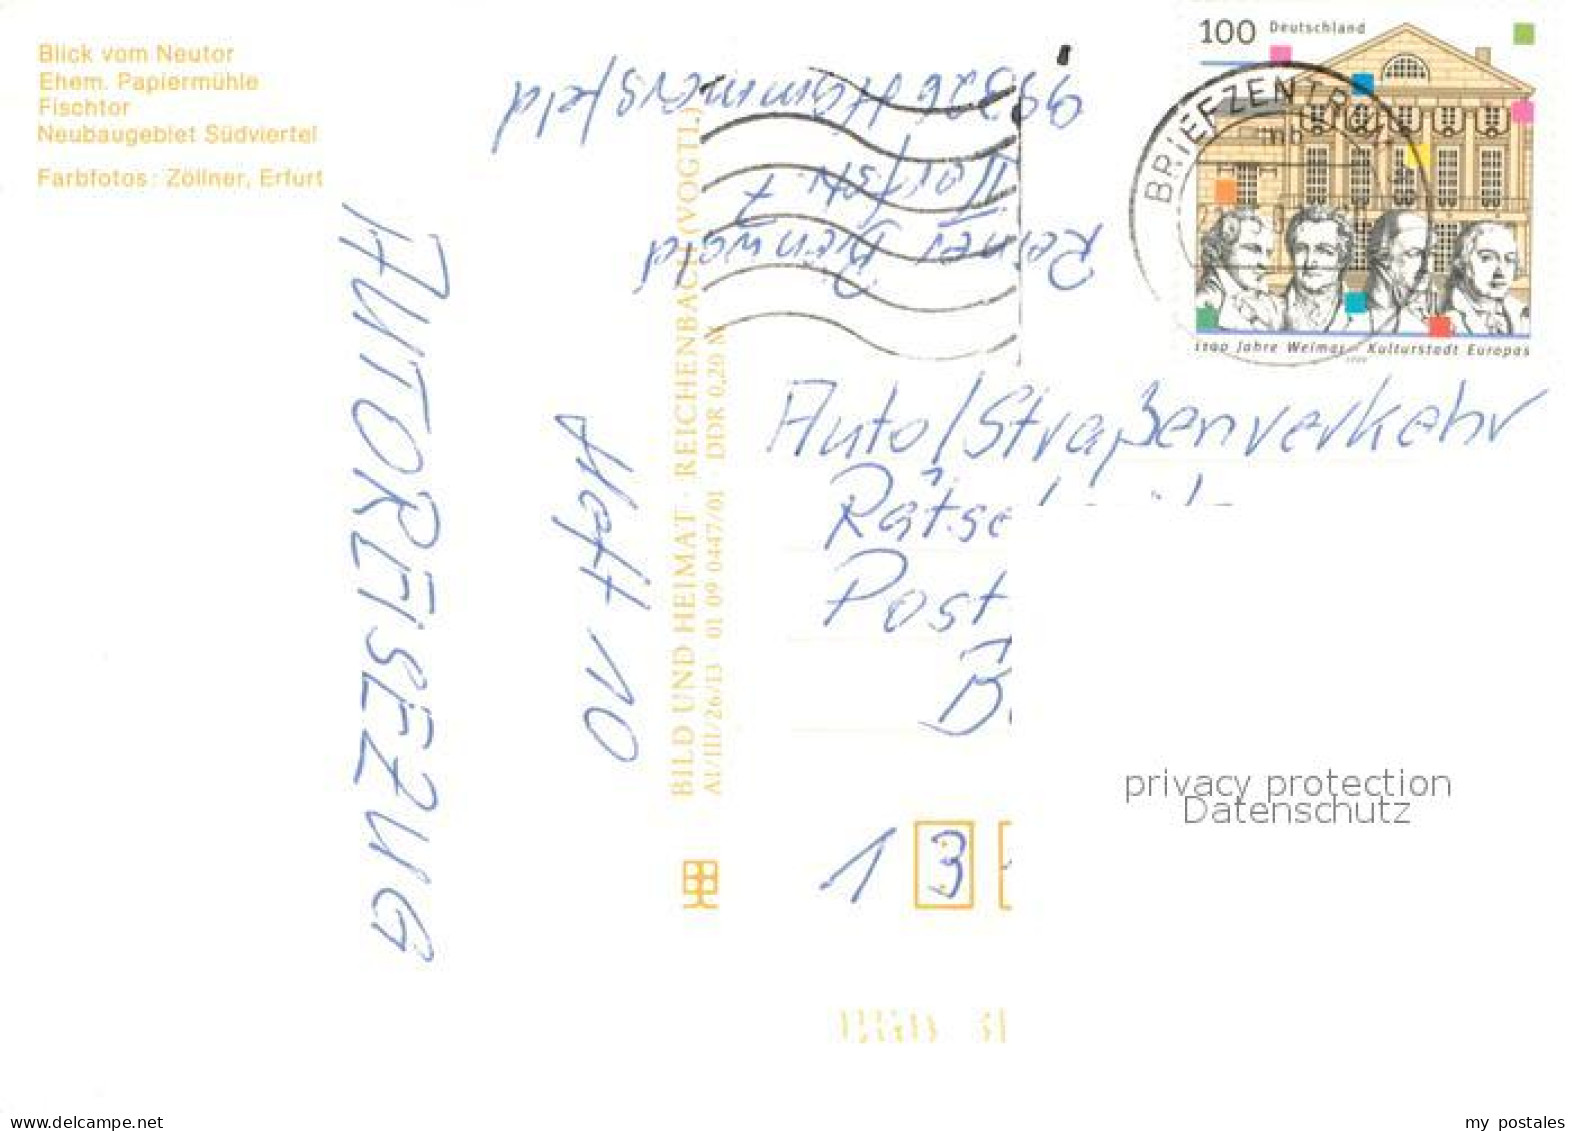 Blick vom Neutor
Ehem. Papiermühle
Fischtor
Neubaugebiet Südviertel
Farbfotos: Zöllner, Erfurt
100 Deutschland
BRIEFZENTRUM
1100 Jahre Weimar – Kulturstadt Europas
Reiner Bienwald
7
99326 Hammersfeld
AUTOREISEZUG
Heft 10
BILD UND HEIMAT · REICHENBACH (VOGTL)
A1/III/26/13 · 01 09 0447/01 · DDR 0,20 M
Auto/Straßenverkehr
Rätse
Post
B
13
privacy protection
Datenschutz
www.delcampe.net
my postales